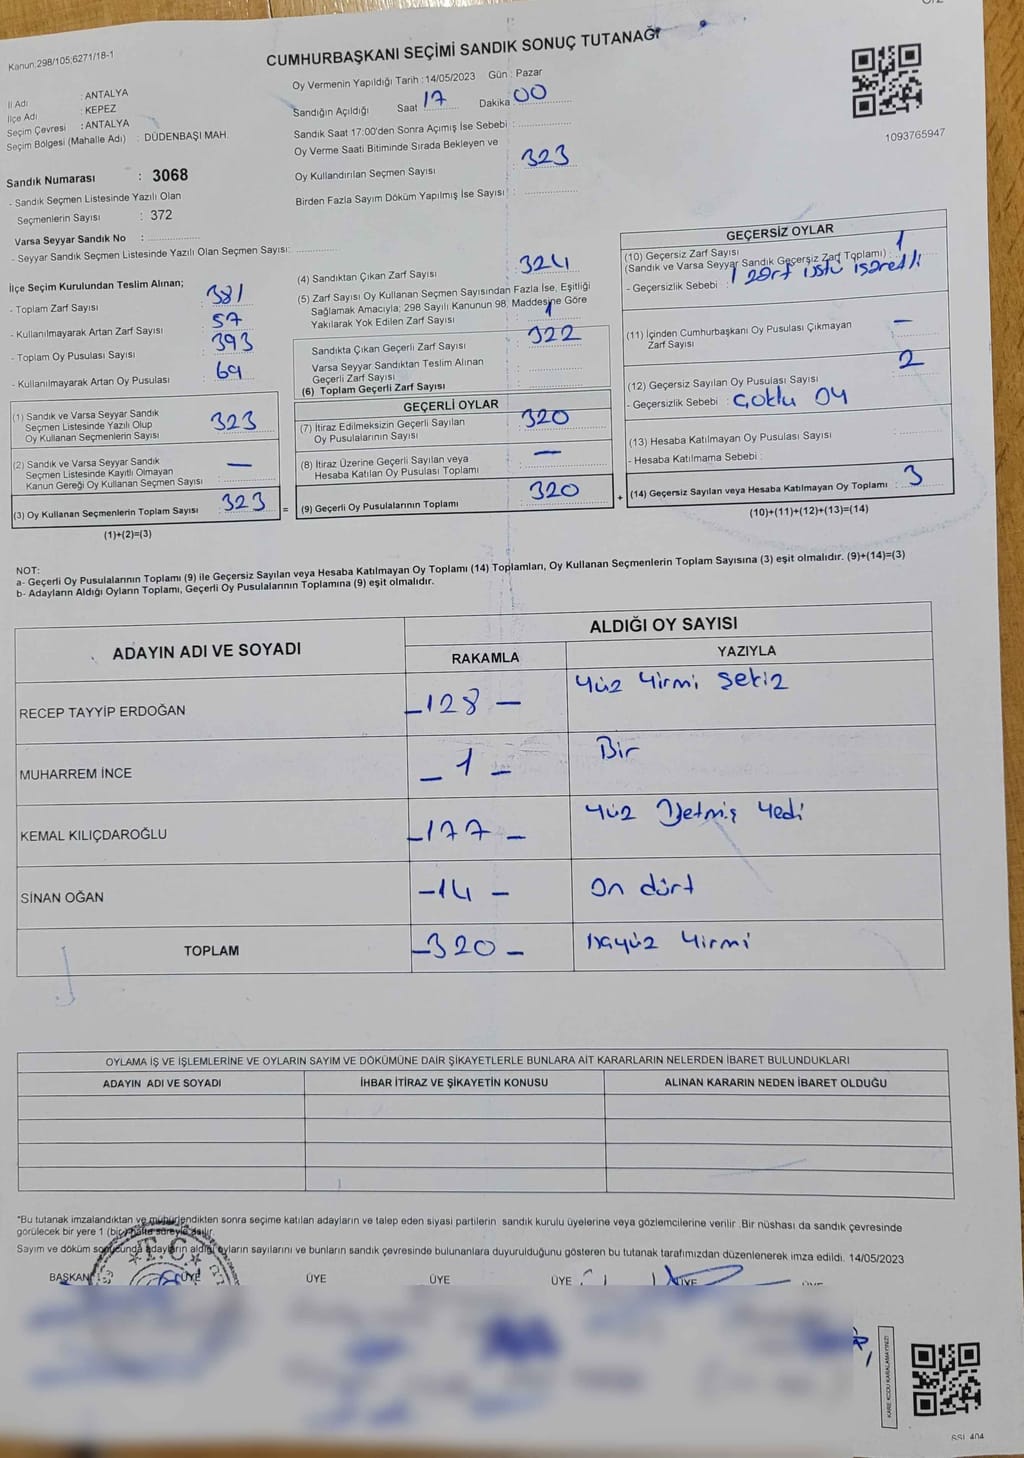 CUMHURBAŞKANI SEÇİMİ SANDIK SONUÇ TUTANAĞI
Kanun;298/105;6271/18-1
İl Adı : ANTALYA
İlçe Adı : KEPEZ
Seçim Çevresi : ANTALYA
Seçim Bölgesi (Mahalle Adı) : DÜDENBAŞI MAH.
Sandık Numarası : 3068
- Sandık Seçmen Listesinde Yazılı Olan
Seçmenlerin Sayısı : 372
Varsa Seyyar Sandık No :
- Seyyar Sandık Seçmen Listesinde Yazılı Olan Seçmen Sayısı:
Oy Vermenin Yapıldığı Tarih : 14/05/2023 Gün : Pazar
Sandığın Açıldığı Saat 17 Dakika 00
Sandık Saat 17:00'den Sonra Açımış İse Sebebi :
Oy Verme Saati Bitiminde Sırada Bekleyen ve
Oy Kullandırılan Seçmen Sayısı : 323
Birden Fazla Sayım Döküm Yapılmış İse Sayısı :
1093765947
İlçe Seçim Kurulundan Teslim Alınan;
- Toplam Zarf Sayısı : 381
- Kullanılmayarak Artan Zarf Sayısı : 57
- Toplam Oy Pusulası Sayısı : 393
- Kullanılmayarak Artan Oy Pusulası : 69
(1) Sandık ve Varsa Seyyar Sandık
Seçmen Listesinde Yazılı Olup
Oy Kullanan Seçmenlerin Sayısı : 323
(2) Sandık ve Varsa Seyyar Sandık
Seçmen Listesinde Kayıtlı Olmayan
Kanun Gereği Oy Kullanan Seçmen Sayısı : —
(3) Oy Kullanan Seçmenlerin Toplam Sayısı : 323
(1)+(2)=(3)
=
(4) Sandıktan Çıkan Zarf Sayısı : 324
(5) Zarf Sayısı Oy Kullanan Seçmen Sayısından Fazla İse, Eşitliği
Sağlamak Amacıyla; 298 Sayılı Kanunun 98. Maddesine Göre
Yakılarak Yok Edilen Zarf Sayısı : 1
Sandıkta Çıkan Geçerli Zarf Sayısı : 322
Varsa Seyyar Sandıktan Teslim Alınan
Geçerli Zarf Sayısı :
(6) Toplam Geçerli Zarf Sayısı :
GEÇERLİ OYLAR
(7) İtiraz Edilmeksizin Geçerli Sayılan
Oy Pusulalarının Sayısı : 320
(8) İtiraz Üzerine Geçerli Sayılan veya
Hesaba Katılan Oy Pusulası Toplamı : —
(9) Geçerli Oy Pusulalarının Toplamı : 320
+
GEÇERSİZ OYLAR
(10) Geçersiz Zarf Sayısı
(Sandık ve Varsa Seyyar Sandık Geçersiz Zarf Toplamı) : 1
- Geçersizlik Sebebi : 1 zarf üstü işaretli
(11) İçinden Cumhurbaşkanı Oy Pusulası Çıkmayan
Zarf Sayısı : —
(12) Geçersiz Sayılan Oy Pusulası Sayısı : 2
- Geçersizlik Sebebi : Çoklu oy
(13) Hesaba Katılmayan Oy Pusulası Sayısı :
- Hesaba Katılmama Sebebi :
(14) Geçersiz Sayılan veya Hesaba Katılmayan Oy Toplamı : 3
(10)+(11)+(12)+(13)=(14)
NOT:
a- Geçerli Oy Pusulalarının Toplamı (9) ile Geçersiz Sayılan veya Hesaba Katılmayan Oy Toplamı (14) Toplamları, Oy Kullanan Seçmenlerin Toplam Sayısına (3) eşit olmalıdır. (9)+(14)=(3)
b- Adayların Aldığı Oyların Toplamı, Geçerli Oy Pusulalarının Toplamına (9) eşit olmalıdır.
ADAYIN ADI VE SOYADI ALDIĞI OY SAYISI
RAKAMLA YAZIYLA
RECEP TAYYİP ERDOĞAN —128— Yüz Yirmi Sekiz
MUHARREM İNCE —1— Bir
KEMAL KILIÇDAROĞLU —177— Yüz Yetmiş Yedi
SİNAN OĞAN —14— On dört
TOPLAM —320— Üçyüz Yirmi
OYLAMA İŞ VE İŞLEMLERİNE VE OYLARIN SAYIM VE DÖKÜMÜNE DAİR ŞİKAYETLERLE BUNLARA AİT KARARLARIN NELERDEN İBARET BULUNDUKLARI
ADAYIN ADI VE SOYADI İHBAR İTİRAZ VE ŞİKAYETİN KONUSU ALINAN KARARIN NEDEN İBARET OLDUĞU
*Bu tutanak imzalandıktan ve mühürlendikten sonra seçime katılan adayların ve talep eden siyasi partilerin sandık kurulu üyelerine veya gözlemcilerine verilir .Bir nüshası da sandık çevresinde
görülecek bir yere 1 (bir) hafta süreyle asılır.
Sayım ve döküm sonucunda adayların aldığı oyların sayılarını ve bunların sandık çevresinde bulunanlara duyurulduğunu gösteren bu tutanak tarafımızdan düzenlenerek imza edildi. 14/05/2023
BAŞKAN ÜYE ÜYE ÜYE ÜYE ÜYE
T.C.
KARE KODU KARALAMAYINIZ!